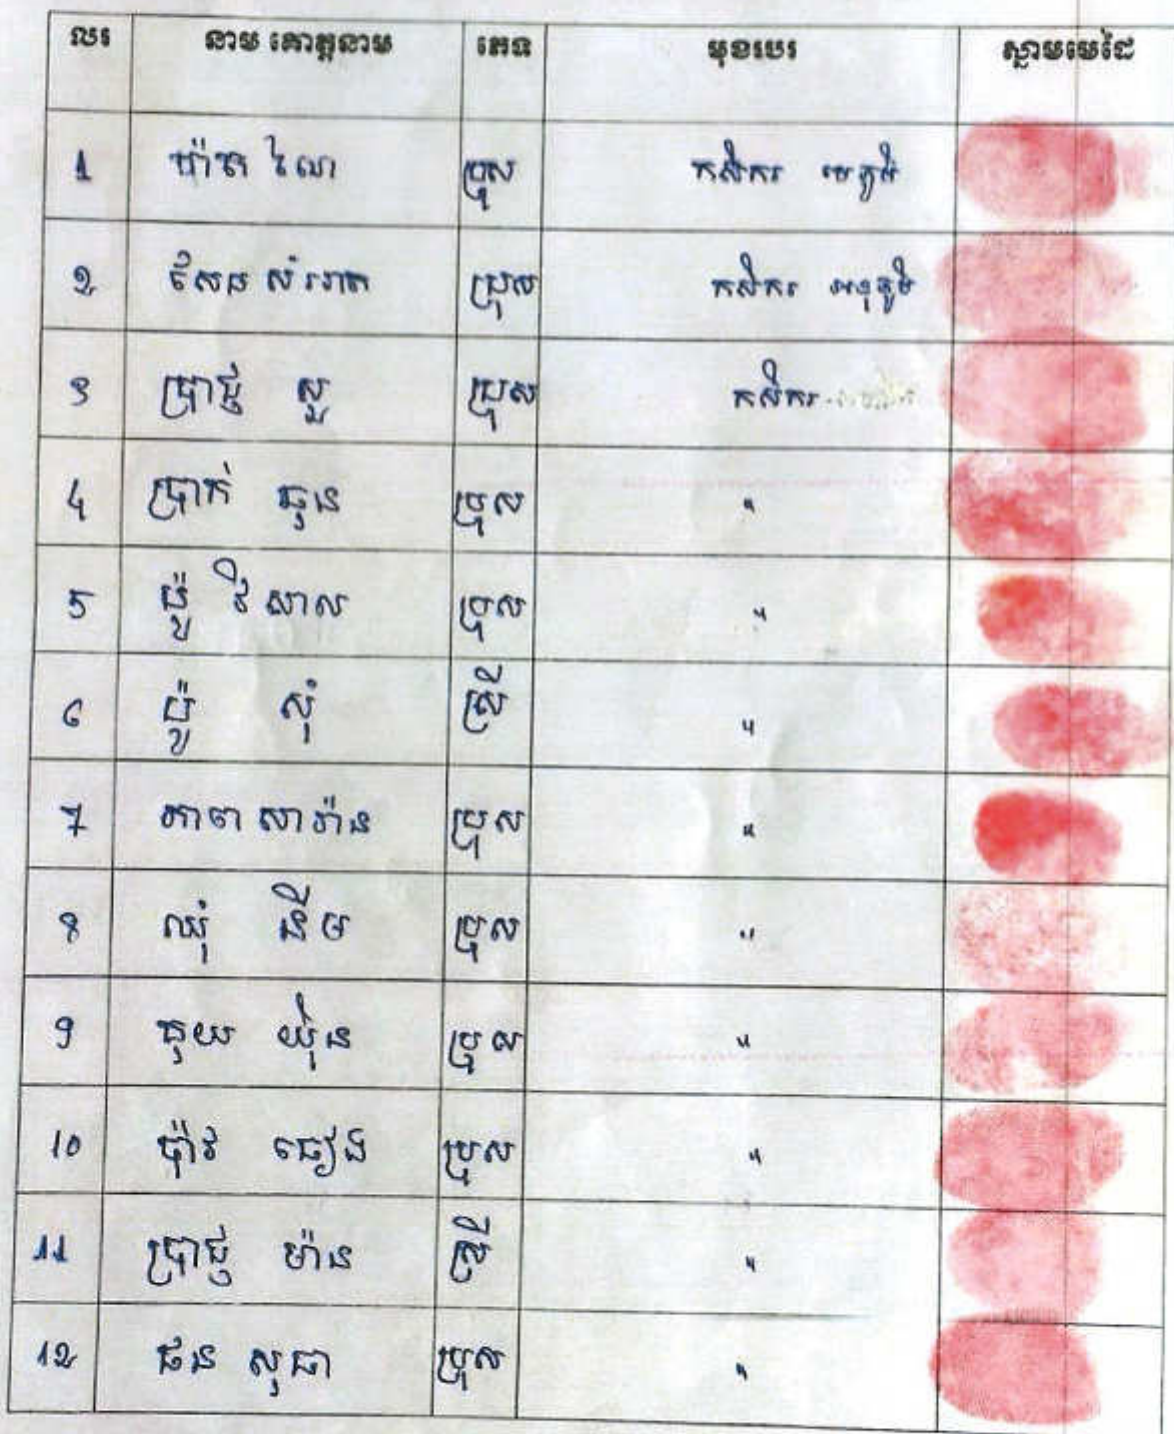 លរ នាម គោត្តនាម ភេទ មុខរបរ ស្នាមមេដៃ
1 ប្រុស កសិករ មេភូមិ
2 សែន សំអាត ប្រុស កសិករ អនុភូមិ
3 ប្រាជ្ញ សួ ប្រុស កសិករ
4 ប្រាក់ ធុន ប្រុស "
5 ប៉ូ វិសាល ប្រុស "
6 ប៉ូ សុំ ស្រី "
7 សាវ៉ាន ប្រុស "
8 ឈុំ នីម ប្រុស "
9 ប្រុស "
10 ប្រុស "
11 ប្រាជ្ញ ម៉ាន ស្រី "
12 ផន សុធា ប្រុស "